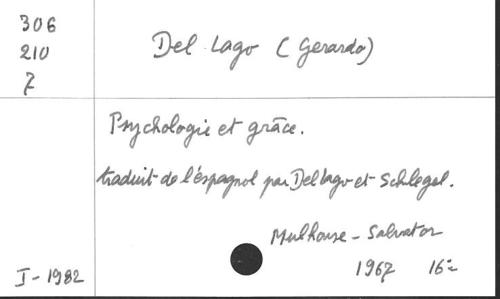 306
210
7
Del Lago (Gerardo)
Psychologie et grâce.
traduit de l'éspagnol par Del Lago et Schlegel.
Mulhouse - Salvator
1967 16º
I - 1982